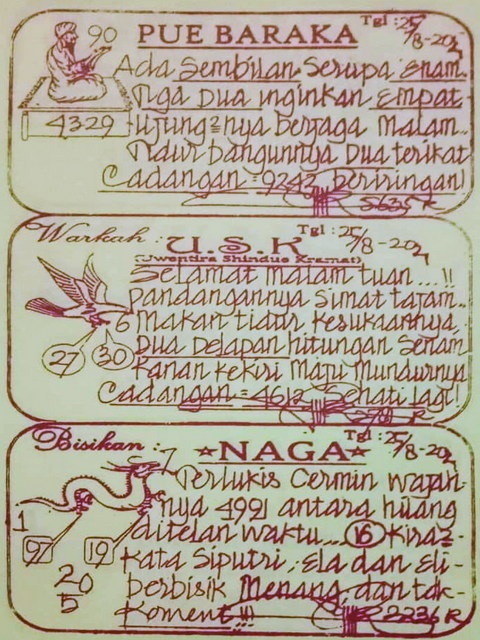 90
PUE BARAKA
Tgl : 25/8-202
Ada Sembilan Serupa enam
Tiga Dua inginkan EMPAT
43-29
Ujung²nya Berjaga Malam..
Tidur bangunnya Dua terikat
Cadangan = 9242 Beriringan!
5635 R
Warkah : U.S.K
Tgl : 25/8-202
(Jwentira Shindue Kramat)
Selamat malam tuan...!!
Pandangannya Simat tajam..
6 Makan tidur kesukaannya
27 30
Dua Delapan hitungan Senam
Kanan kekiri Maju Mundurnya
Cadangan = 4612 Sehati lagi!
R
Bisikan : NAGA
Tgl : 25/8-202
7
Terlukis Cermin wajah-
nya 4991 antara hilang
1
ditelan waktu... 16 Kira²-
97 19
Kata Siputri, Ela dan Eli-
20
5
berbisik Menang dan tak-
Koment !!!
2236 R